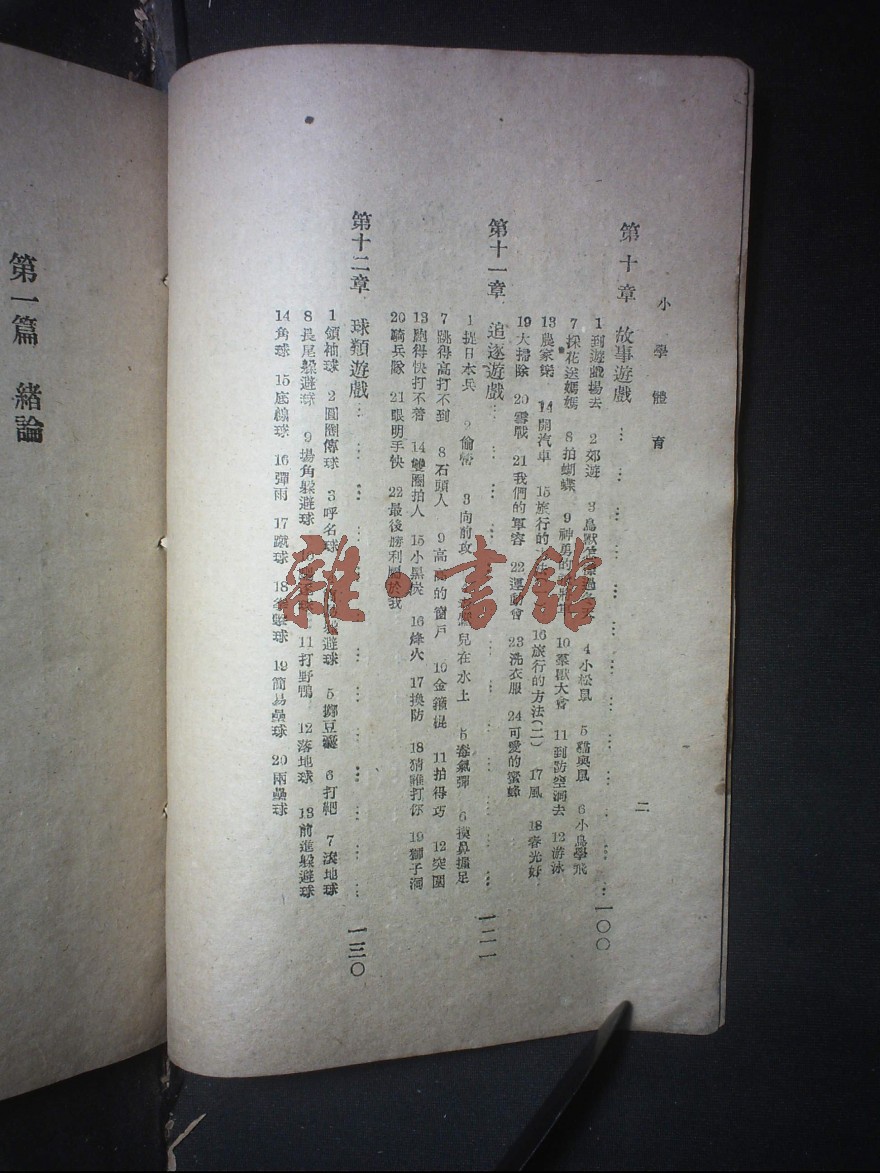 小學體育
二
第十章 故事遊戲……一〇〇
1到遊戲場去 2郊遊 3鳥獸 4小松鼠 5貓與鼠 6小鳥學飛
7採花送媽媽 8拍蝴蝶 9神勇的 10羣獸大會 11到防空洞去 12游泳
13農家樂 14開汽車 15旅行的方法 16旅行的方法(二) 17風 18春光好
19大掃除 20雪戰 21我們的軍容 22運動會 23洗衣服 24可愛的蜜蜂
第十一章 追逐遊戲……一二一
1捉日本兵 2偷營 3向前攻 兒在水上 5毒氣彈 6摸鼻攝足
7跳得高打不到 8石頭人 9高高的窗戶 10金箍棍 11拍得巧 12突圍
13跑得快打不着 14雙圈拍人 15小黑炭 16烽火 17換防 18猜誰打你 19獅子洞
20騎兵隊 21眼明手快 22最後勝利屬於我
第十二章 球類遊戲……一三〇
1領袖球 2圓圈傳球 3呼名球 避球 5擲豆囊 6打靶 7滾地球
8長尾躲避球 9場角躲避球 11打野鴨 12落地球 13前進躲避球
14角球 15底線球 16彈雨 17蹴球 18拳擊球 19簡易壘球 20兩壘球
第一篇 緒論
雜·書館